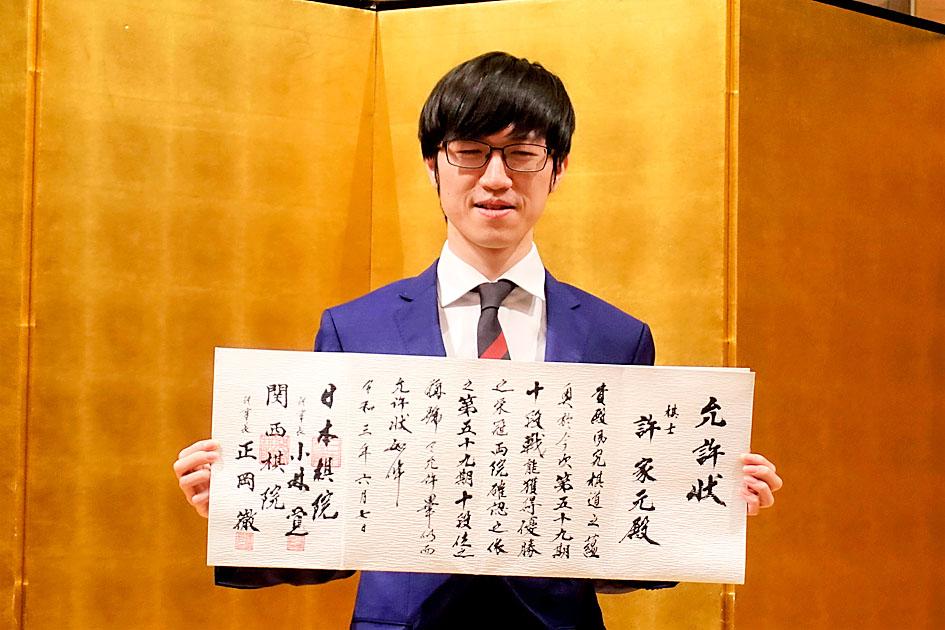 允許状
棋士
許家元殿
貴殿夙究棋道之蘊
奥於今次第五十九期
十段戦能獲得優勝
之栄冠両院確認之依
之第五十九期十段位之
称号令允許畢仍而
允許状如件
令和三年六月七日
日本棋院
理事長 小林覚
関西棋院
理事長 正岡徹